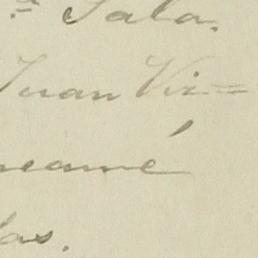 ª Sala.
Juan Vir=
neamé
las.